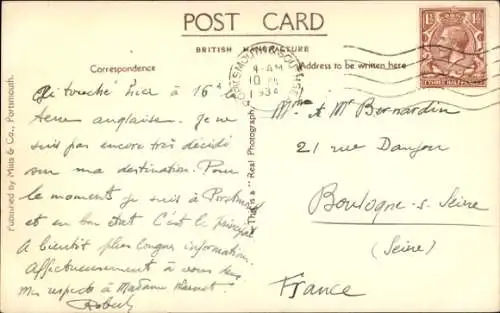 POST CARD
BRITISH MANUFACTURE
Correspondence
Address to be written here
PORTSMOUTH & SOUTHSEA
4 - AM
10
1934
Published by Mills & Co., Portsmouth.
This is a "Real Photograph"
ai touché hier à 16 h
terre anglaise. Je ne
suis pas encore très décidé
sur ma destination. Pour
le moment je suis à Portsmouth
et en bon état C'est le principal
A bientôt plus longue information.
Affectueusement à vous deux
Mes respects à Madame
Robert
Mme & Mr Bernardin
21 rue Danjou
Boulogne-s. Seine
(Seine)
France